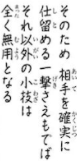 そのため 相手を確実に
仕留める一撃さえもてば
それ以外の小技は
全く無用となる